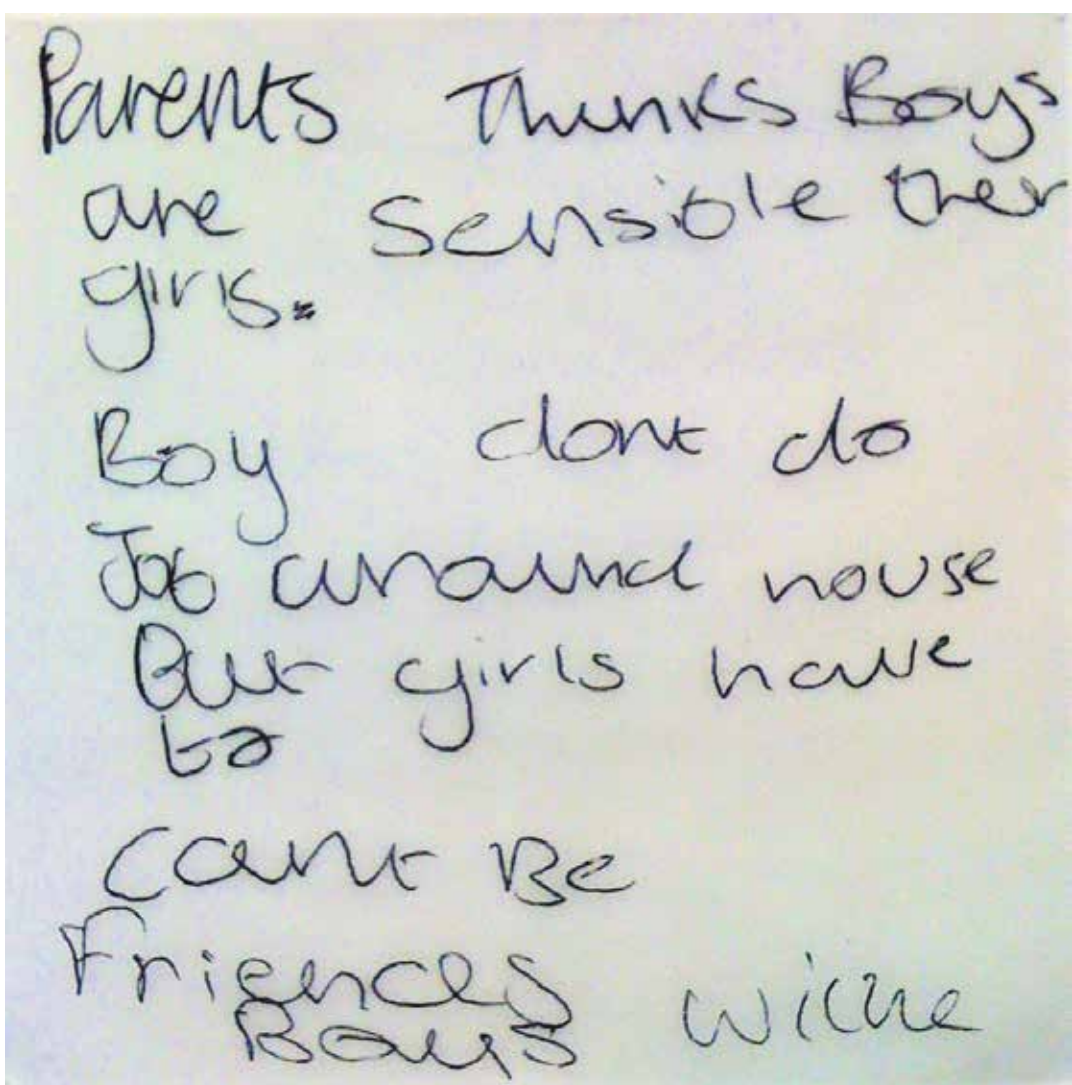 Parents Thinks Boys
are sensible then
girls.
Boy dont do
Job around house
But girls have
to
cant Be
Friends
Boys